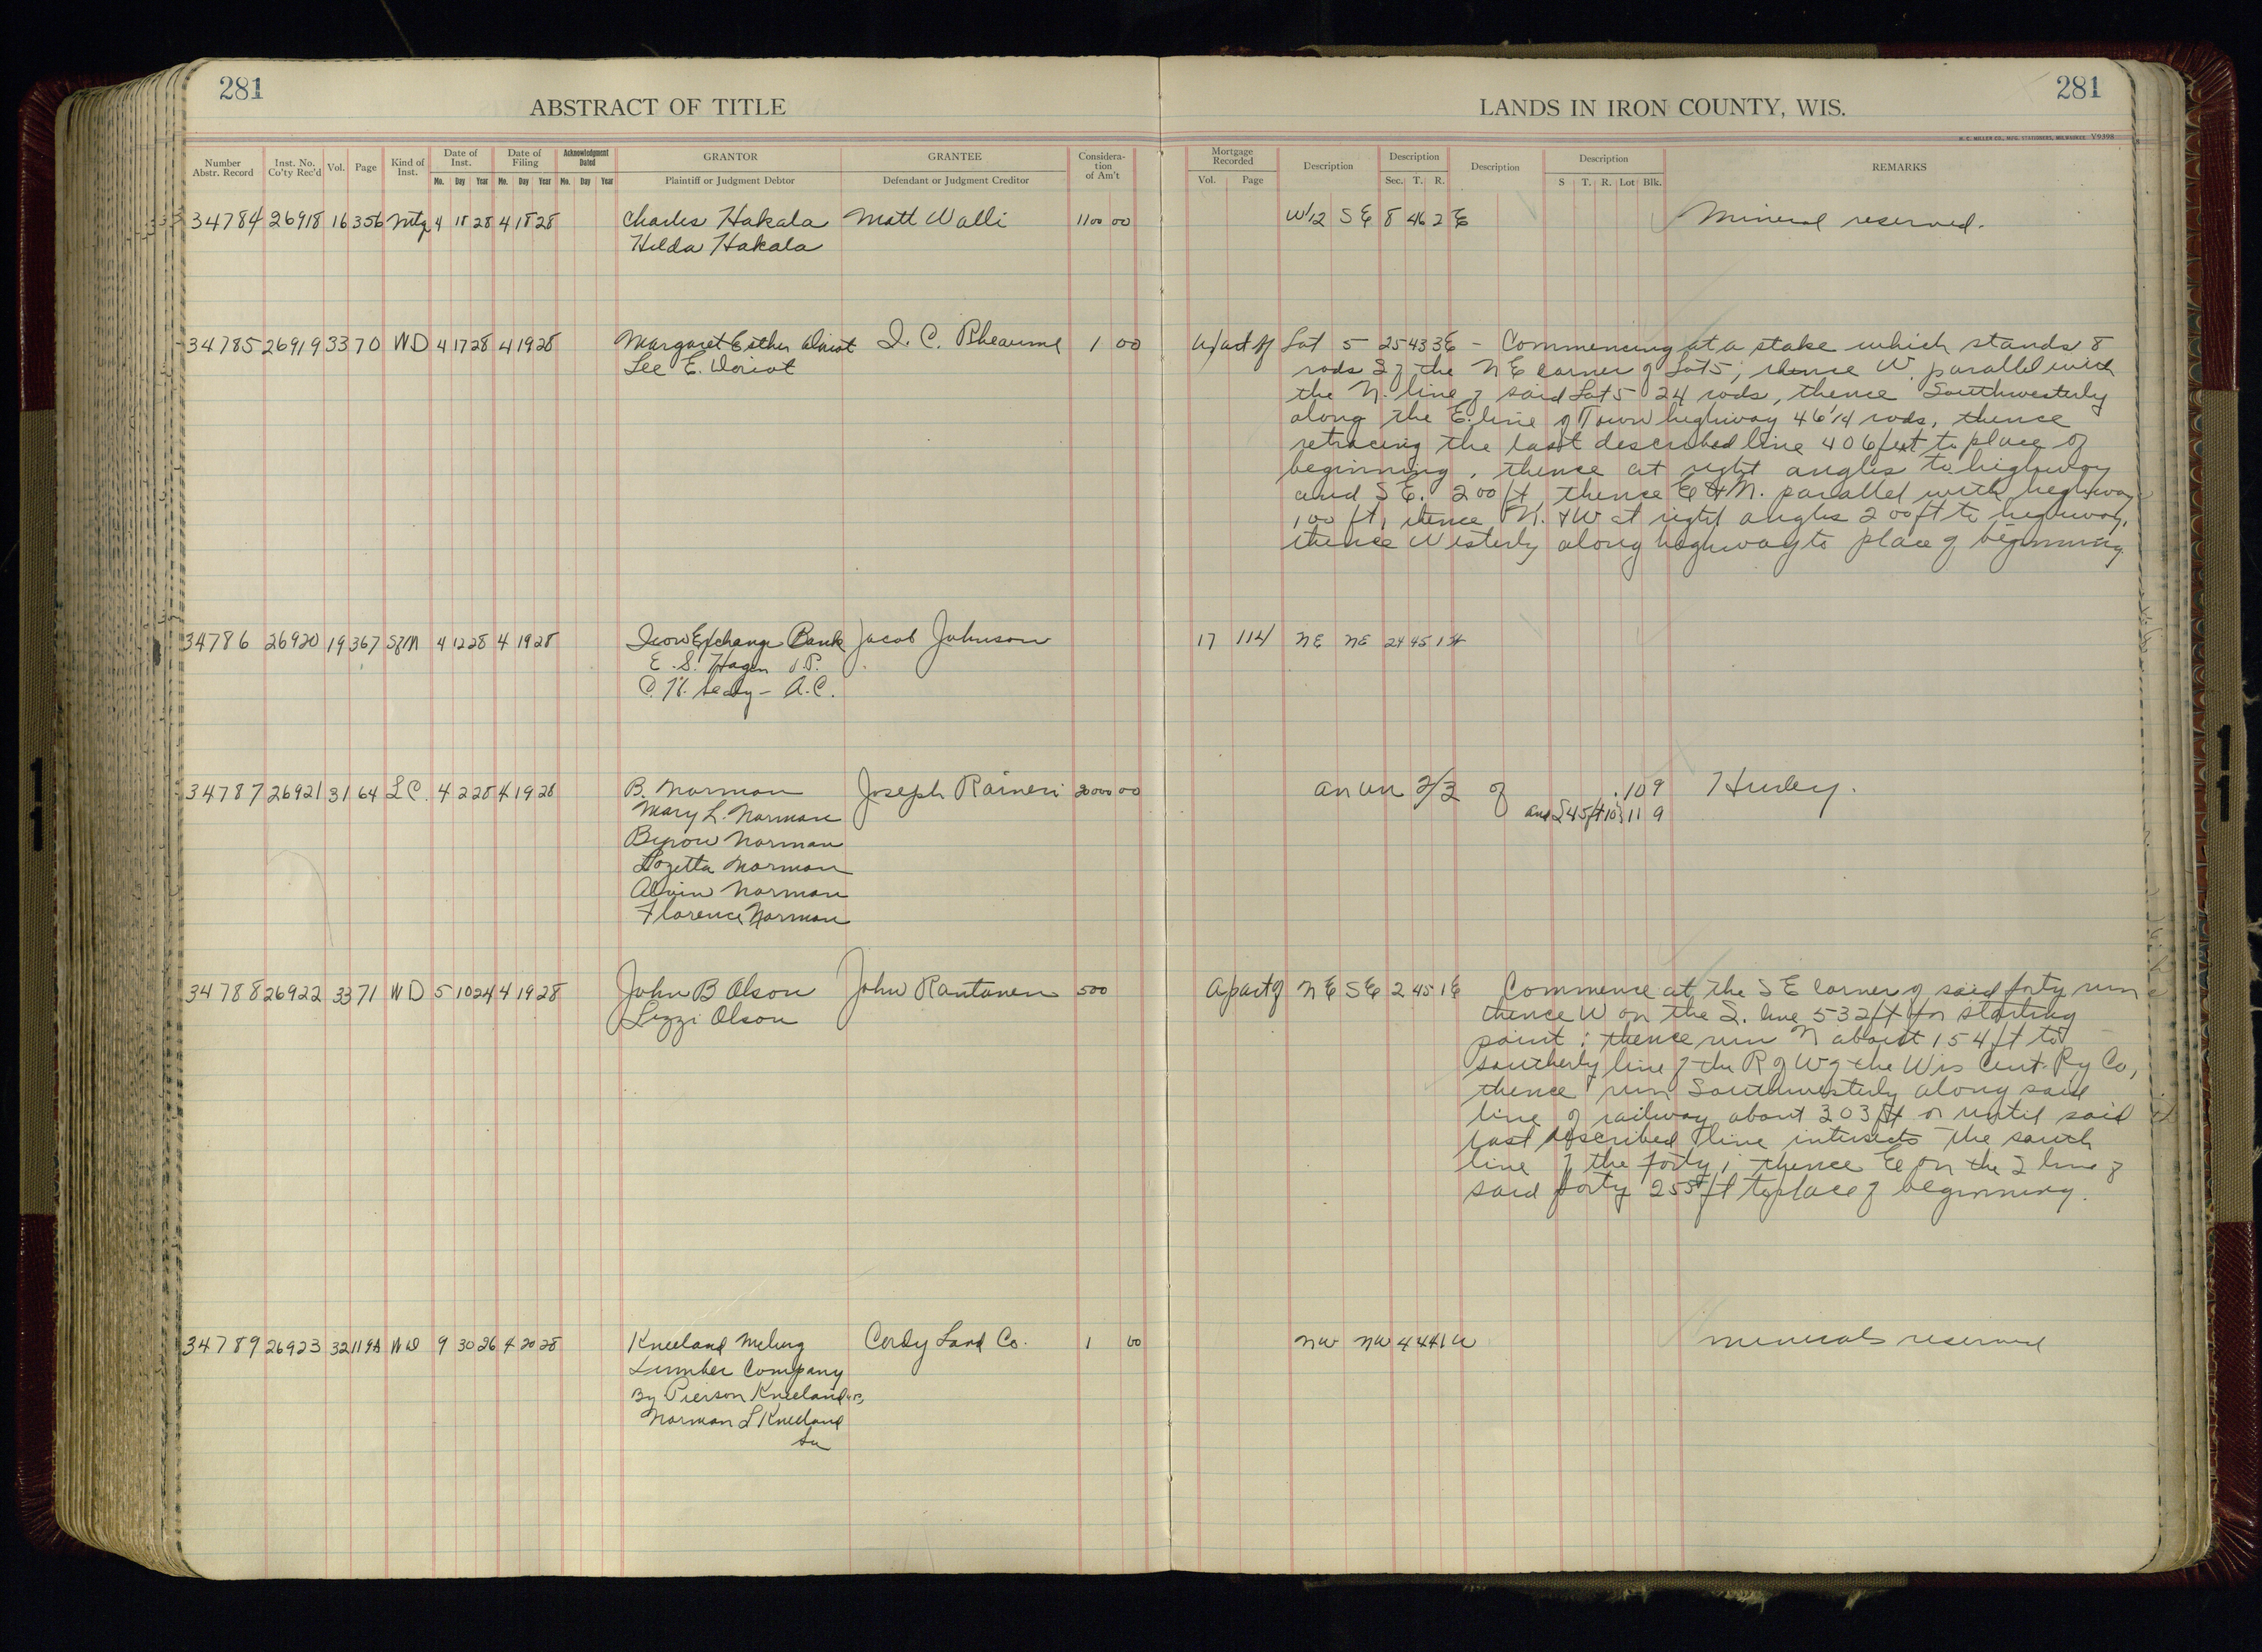 281
281
ABSTRACT OF TITLE
LANDS IN IRON COUNTY, WIS.
H. C. MILLER CO., MFG. STATIONERS, MILWAUKEE V9398
Number Abstr. Record | Inst. No. Co'ty Rec'd | Vol. | Page | Kind of Inst. | Date of Inst. Mo. Day Year | Date of Filing Mo. Day Year | Acknowledgment Dated Mo. Day Year | GRANTOR Plaintiff or Judgment Debtor | GRANTEE Defendant or Judgment Creditor | Consideration of Am't | Mortgage Recorded Vol. Page | Description | Description Sec. T. R. | Description | Description S T. R. Lot Blk. | REMARKS
34784 26918 16 356 Mtg 4 18 28 4 18 28 Charles Hakala Matt Walli 1100 00 W1/2 SE 8 46 2 E Mineral reserved.
Hilda Hakala
34785 26919 33 70 WD 4 17 28 4 19 28 Margaret Esther Doriot I. C. Rheaume 1 00 a part of Lot 5 25 43 3E - Commencing at a stake which stands 8
Lee E. Doriot rods S of the NE corner of Lot 5; thence W. parallel with
the N. line of said Lot 5 24 rods, thence Southwesterly
along the E. line of Town highway 46 1/4 rods, thence
retracing the last described line 406 feet to place of
beginning, thence at right angles to highway
and SE. 200 ft, thence E & N. parallel with highway
100 ft, thence N. & W at right angles 200 ft to highway,
thence Westerly along highway to place of beginning
34786 26920 19 367 SfM 4 12 28 4 19 28 Iron Exchange Bank Jacob Johnson 17 114 NE NE 24 45 1
E. S. Hagen V.P.
A.C.
34787 26921 31 64 LC. 4 2 28 4 19 28 B. Norman Joseph Raineri 20000 00 an un 2/3 of 10 9 Hurley.
Mary L. Norman and S 45 ft of 11 9
Byron Norman
Rozetta Norman
Alvin Norman
Florence Norman
34788 26922 33 71 WD 5 10 24 4 19 28 John B Olson John Rantanen 500 a part of NE SE 2 45 1E Commence at the SE corner of said forty run
Lizzi Olson thence W on the S. line 532 ft for starting
point; thence run N about 154 ft to
southerly line of the R of W of the Wis Cent. Ry Co,
thence run Southwesterly along said
line of railway about 303 ft or until said
last described line intersects the south
line of the forty; thence E on the S line of
said forty 255 ft to place of beginning.
34789 26923 32 119 WD 9 30 26 4 20 28 Kneeland McLurg Cordy Land Co. 1 00 NW NW 4 44 1 W minerals reserved
Lumber Company
By Pierson Kneeland
Norman L Kneeland